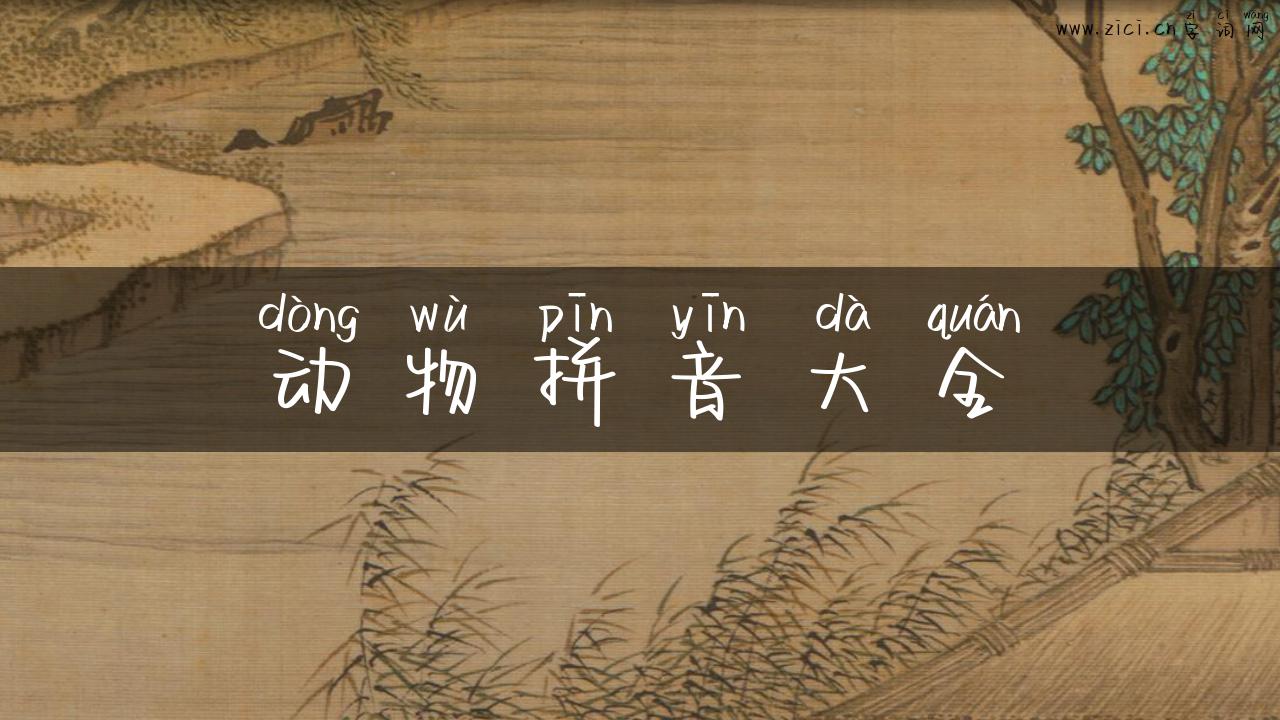 zì cí wǎng
www.zici.cn字词网
dòng wù pīn yīn dà quán
动物拼音大全